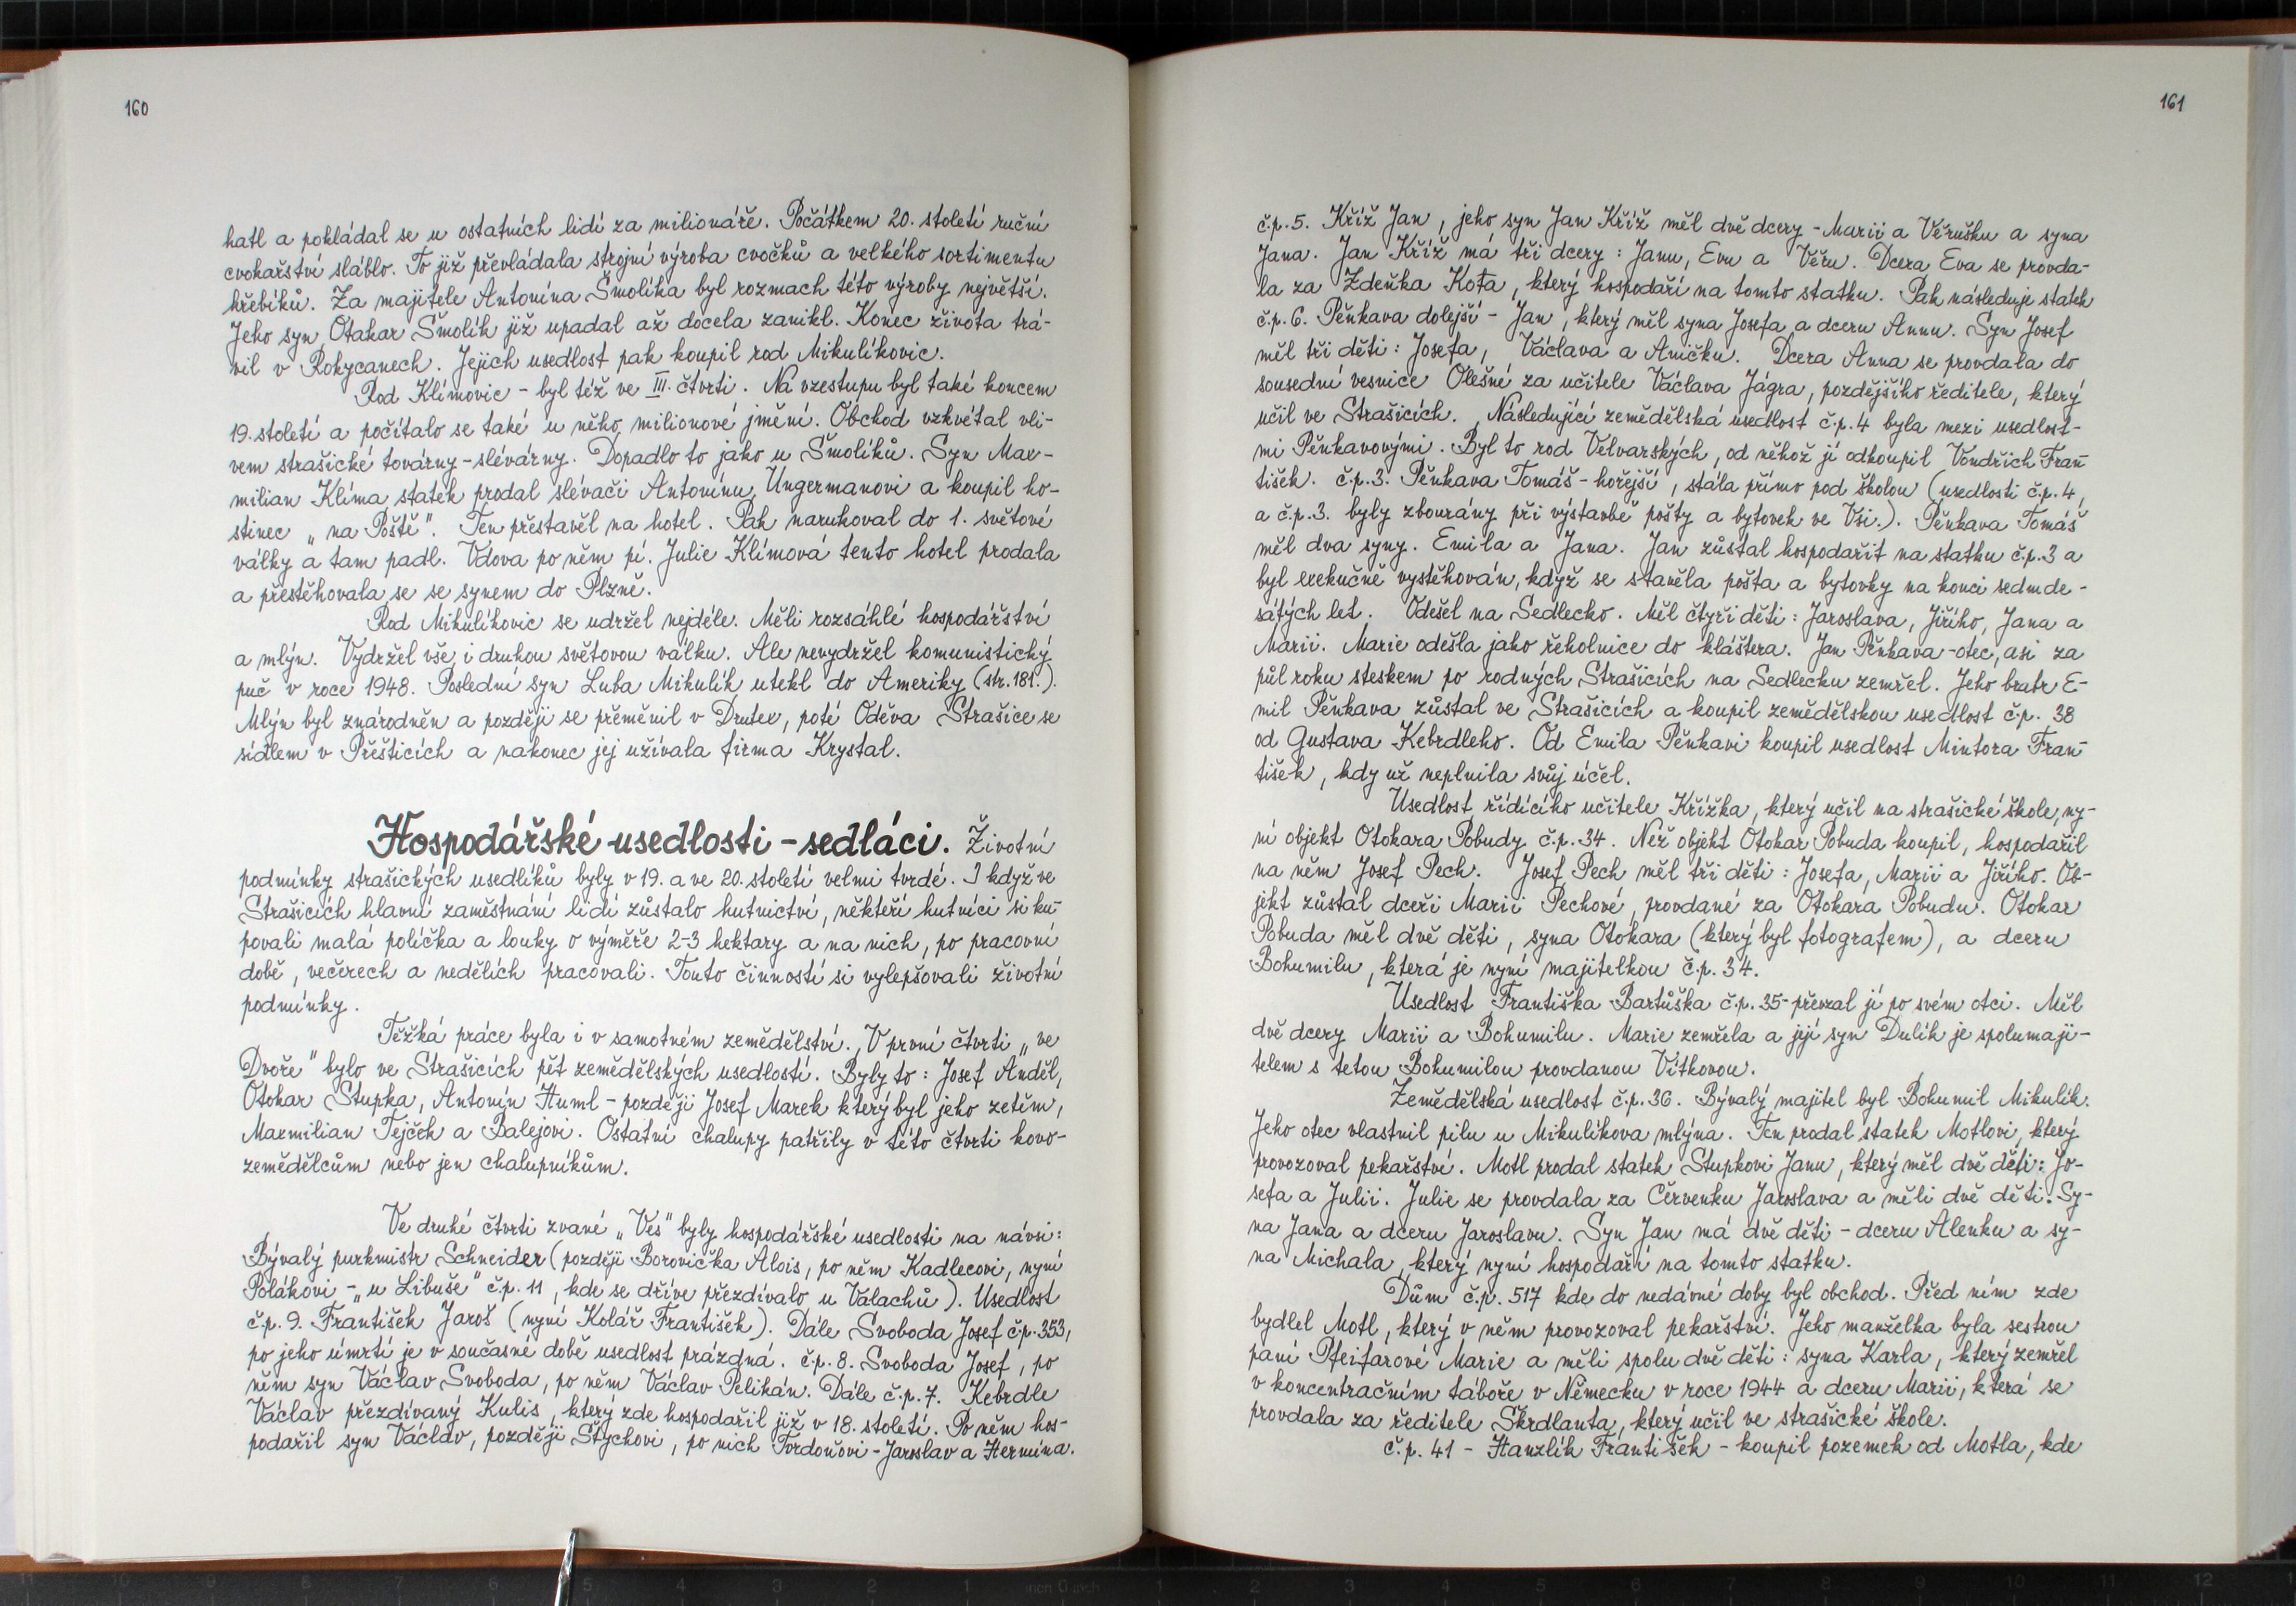 160
hatl a pokládal se u ostatních lidí za milionáře. Počátkem 20. století ruční
cvokařství sláblo. To již převládala strojní výroba cvočků a velkého sortimentu
hřebíků. Za majitele Antonína Šmolíka byl rozmach této výroby největší.
Jeho syn Otakar Šmolík již upadal až docela zanikl. Konec života trá-
vil v Rokycanech. Jejich usedlost pak koupil rod Mikulíkovic.
Rod Klímovic - byl též ve III. čtvrti. Na vzestupu byl také koncem
19. století a počítalo se také u něho milionové jmění. Obchod vzkvétal vli-
vem strašické továrny - slévárny. Dopadlo to jako u Šmolíků. Syn Max-
milian Klíma statek prodal slévači Antonínu Ungermanovi a koupil ho-
stinec „na Poště". Ten přestavěl na hotel. Pak narukoval do 1. světové
války a tam padl. Vdova po něm pí. Julie Klímová tento hotel prodala
a přestěhovala se se synem do Plzně.
Rod Mikulíkovic se udržel nejdéle. Měli rozsáhlé hospodářství
a mlýn. Vydržel vše i druhou světovou válku. Ale nevydržel komunistický
puč v roce 1948. Poslední syn Luba Mikulík utekl do Ameriky (str. 181.).
Mlýn byl znárodněn a později se přeměnil v Drutex, poté Oděva Strašice se
sídlem v Přešticích a nakonec jej užívala firma Krystal.
Hospodářské usedlosti - sedláci. Životní
podmínky strašických usedlíků byly v 19. a ve 20. století velmi tvrdé. I když ve
Strašicích hlavní zaměstnání lidí zůstalo hutnictví, někteří hutníci si ku-
povali malá políčka a louky o výměře 2-3 hektary a na nich, po pracovní
době, večerech a nedělích pracovali. Touto činností si vylepšovali životní
podmínky.
Těžká práce byla i v samotném zemědělství. V první čtvrti „ve
Dvoře" bylo ve Strašicích pět zemědělských usedlostí. Byly to: Josef Anděl,
Otokar Stupka, Antonín Huml - později Josef Marek který byl jeho zetěm,
Maxmilian Tejček a Balejovi. Ostatní chalupy patřily v této čtvrti kovo-
zemědělcům nebo jen chalupníkům.
Ve druhé čtvrti zvané „Ves" byly hospodářské usedlosti na návsi:
Bývalý purkmistr Schneider (později Borovička Alois, po něm Kadlecovi, nyní
Polákovi - „u Libuše" č.p. 11, kde se dříve přezdívalo u Valachů). Usedlost
č.p. 9. František Jaroš (nyní Kolář František). Dále Svoboda Josef č.p. 353,
po jeho úmrtí je v současné době usedlost prázdná. č.p. 8. Svoboda Josef, po
něm syn Václav Svoboda, po něm Václav Pelikán. Dále č.p. 7. Kebrdle
Václav přezdívaný Kulis, který zde hospodařil již v 18. století. Po něm hos-
podařil syn Václav, později Štychovi, po nich Tvrdoňovi - Jaroslav a Hermína.
161
č.p. 5. Kříž Jan, jeho syn Jan Kříž měl dvě dcery - Marii a Věrušku a syna
Jana. Jan Kříž má tři dcery: Janu, Evu a Věru. Dcera Eva se provda-
la za Zdeňka Koťa, který hospodaří na tomto statku. Pak následuje statek
č.p. 6. Pěnkava dolejší - Jan, který měl syna Josefa a dceru Annu. Syn Josef
měl tři děti: Josefa, Václava a Aničku. Dcera Anna se provdala do
sousední vesnice Olešné za učitele Václava Jágra, pozdějšího ředitele, který
učil ve Strašicích. Následující zemědělská usedlost č.p. 4 byla mezi usedlost-
mi Pěnkavovými. Byl to rod Velvarských, od něhož ji odkoupil Vondřich Fran-
tišek. č.p. 3. Pěnkava Tomáš - hořejší, stála přímo pod školou (usedlosti č.p. 4,
a č.p. 3. byly zbourány při výstavbě pošty a bytovek ve Vsi.). Pěnkava Tomáš
měl dva syny. Emila a Jana. Jan zůstal hospodařit na statku č.p. 3 a
byl exekučně vystěhován, když se stavěla pošta a bytovky na konci sedmde-
sátých let. Odešel na Sedlecko. Měl čtyři děti: Jaroslava, Jiřího, Jana a
Marii. Marie odešla jako řeholnice do kláštera. Jan Pěnkava - otec, asi za
půl roku steskem po rodných Strašicích na Sedlecku zemřel. Jeho bratr E-
mil Pěnkava zůstal ve Strašicích a koupil zemědělskou usedlost č.p. 38
od Gustava Kebrdleho. Od Emila Pěnkavi koupil usedlost Mintora Fran-
tišek, kdy už neplnila svůj účel.
Usedlost řídícího učitele Křížka, který učil na strašické škole, ny-
ní objekt Otokara Pobudy č.p. 34. Než objekt Otokar Pobuda koupil, hospodařil
na něm Josef Pech. Josef Pech měl tři děti: Josefa, Marii a Jiřího. Ob-
jekt zůstal dceři Marii Pechové, provdané za Otokara Pobudu. Otokar
Pobuda měl dvě děti, syna Otokara (který byl fotografem), a dceru
Bohumilu, která je nyní majitelkou č.p. 34.
Usedlost Františka Bartůška č.p. 35 - převzal ji po svém otci. Měl
dvě dcery Marii a Bohumilu. Marie zemřela a její syn Dulík je spolumaji-
telem s tetou Bohumilou provdanou Vítkovou.
Zemědělská usedlost č.p. 36. Bývalý majitel byl Bohumil Mikulík.
Jeho otec vlastnil pilu u Mikulíkova mlýna. Ten prodal statek Motlovi, který
provozoval pekařství. Motl prodal statek Stupkovi Janu, který měl dvě děti: Jo-
sefa a Julii. Julie se provdala za Červenku Jaroslava a měli dvě děti. Sy-
na Jana a dceru Jaroslavu. Syn Jan má dvě děti - dceru Alenku a sy-
na Michala, který nyní hospodaří na tomto statku.
Dům č.p. 517 kde do nedávné doby byl obchod. Před ním zde
bydlel Motl, který v něm provozoval pekařství. Jeho manželka byla sestrou
paní Pfeifarové Marie a měli spolu dvě děti: syna Karla, který zemřel
v koncentračním táboře v Německu v roce 1944 a dceru Marii, která se
provdala za ředitele Škrdlanta, který učil ve strašické škole.
č.p. 41 - Hanzlík František - koupil pozemek od Motla, kde